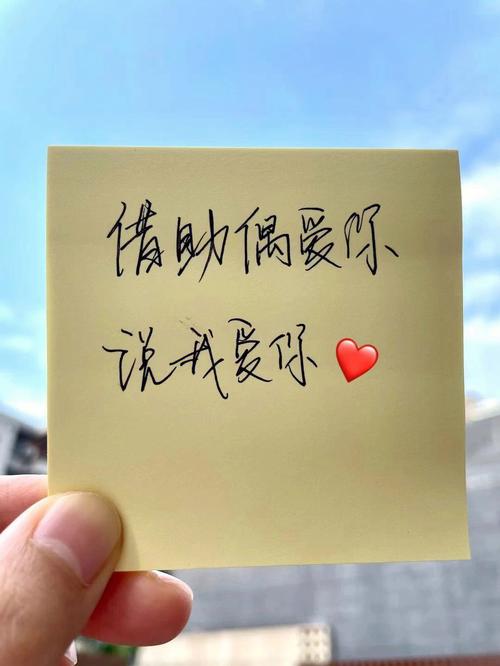 借助偶爱你
说我爱你❤️